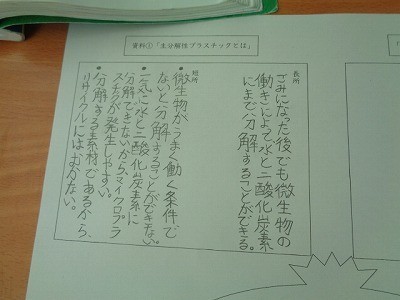 資料①「生分解性プラスチックとは」
長所
ごみになった後でも微生物の
働きによって水と二酸化炭素
にまで分解することができる。
短所
●微生物がうまく働く条件で
ないと分解することができない。
●一気に水と二酸化炭素に
分解できないから、マイクロプラ
スチックが発生しやすい。
●分解する素材であるから、
リサイクルには向かない。